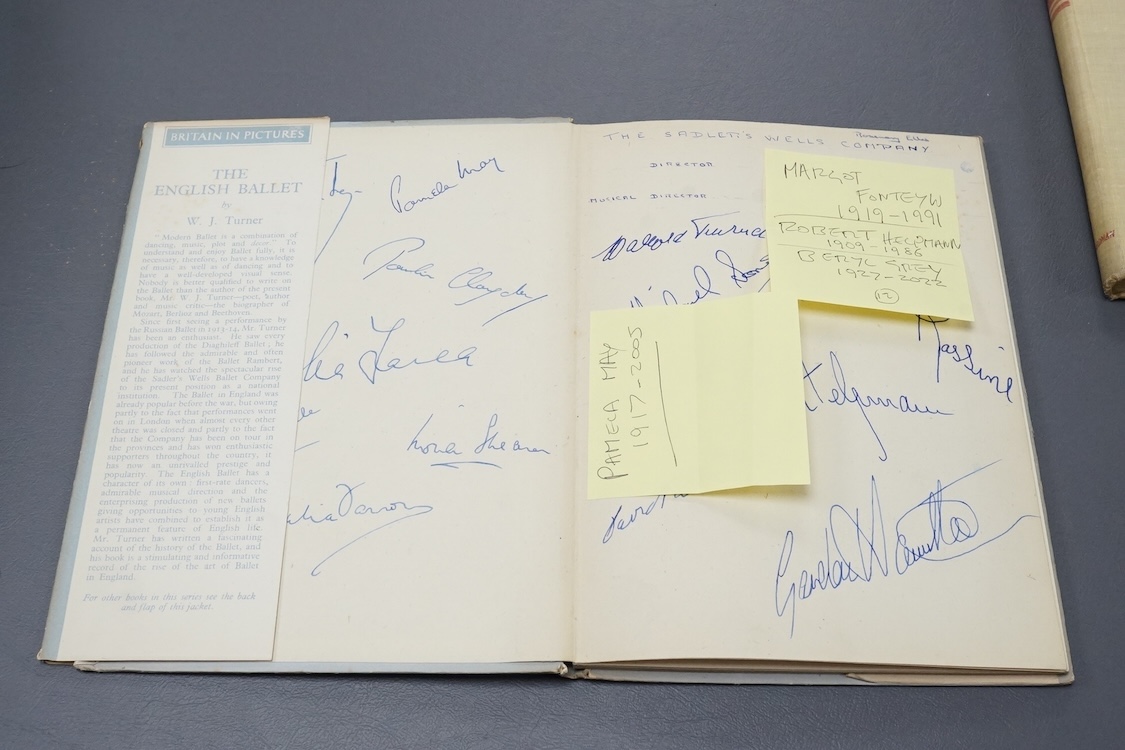 BRITAIN IN PICTURES
THE
ENGLISH BALLET
by
W. J. Turner
" Modern Ballet is a combination of
dancing, music, plot and décor." To
understand and enjoy Ballet fully, it is
necessary, therefore, to have a knowledge
of music as well as of dancing and to
have a well-developed visual sense.
Nobody is better qualified to write on
the Ballet than the author of the present
book, Mr. W. J. Turner—poet, author
and music critic—the biographer of
Mozart, Berlioz and Beethoven.
Since first seeing a performance by
the Russian Ballet in 1913-14, Mr. Turner
has been an enthusiast. He saw every
production of the Diaghileff Ballet; he
has followed the admirable and often
pioneer work of the Ballet Rambert,
and he has watched the spectacular rise
of the Sadler's Wells Ballet Company
to its present position as a national
institution. The Ballet in England was
already popular before the war, but owing
partly to the fact that performances went
on in London when almost every other
theatre was closed and partly to the fact
that the Company has been on tour in
the provinces and has won enthusiastic
supporters throughout the country, it
has now an unrivalled prestige and
popularity. The English Ballet has a
character of its own: first-rate dancers,
admirable musical direction and the
enterprising production of new ballets
giving opportunities to young English
artists have combined to establish it as
a permanent feature of English life.
Mr. Turner has written a fascinating
account of the history of the Ballet, and
his book is a stimulating and informative
record of the rise of the art of Ballet
in England.
For other books in this series see the back
and flap of this jacket.
Pamela May
Pauline Clayden
Moira Shearer
THE SADLER'S WELLS COMPANY
DIRECTOR
MUSICAL DIRECTOR
Harold Turner
Massine
Helpmann
David
Gordon Hamilton
MARGOT
FONTEYN
1919-1991
ROBERT HELPMANN
1909-1986
BERYL GREY
1927-2022
12
PAMELA MAY
1917-2005